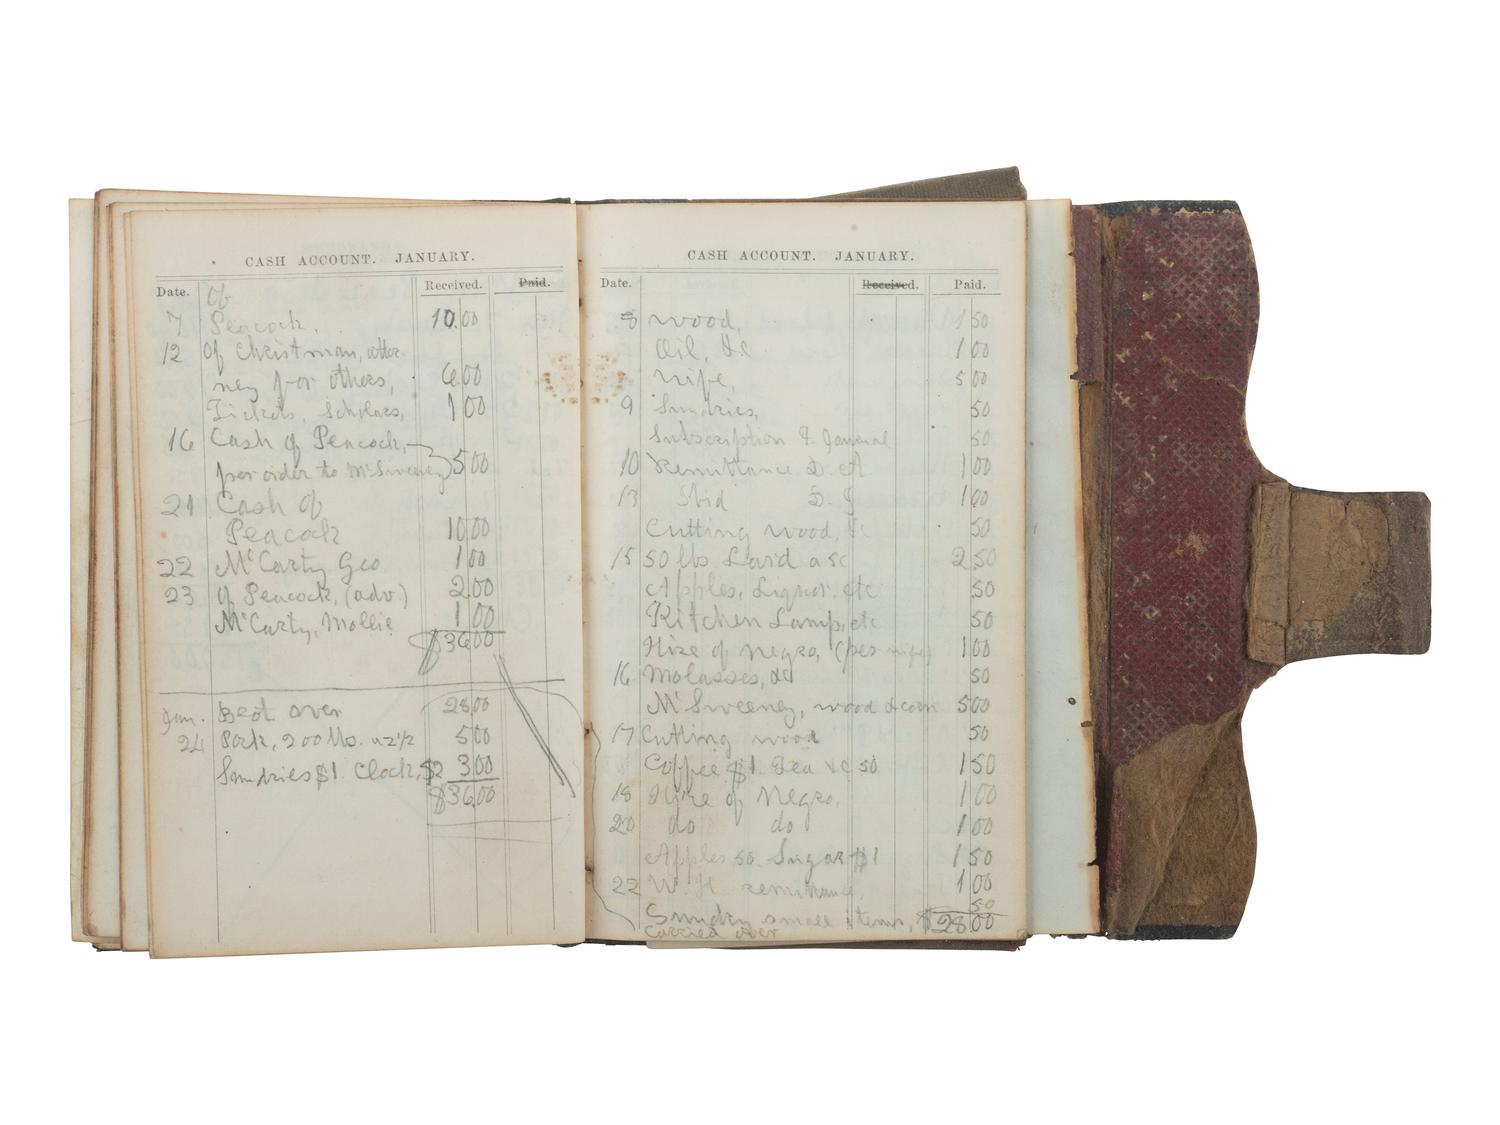 CASH ACCOUNT. JANUARY.
Date. Of Received. Paid.
7 Peacock, 10.00
12 Of Christman, attor
ney for others, 6.00
Tickets, Scholars, 1 00
16 Cash of Peacock,
per order to McSweeney 5 00
21 Cash of
Peacock 10 00
22 McCarty Geo 1 00
23 Of Peacock, (adv.) 2 00
McCarty, Mollie 1 00
$36 00
Jan. Brot over 28 00
24 Pork, 200 lbs. a 2½ 5 00
Sundries $1. Clock, $2 3 00
$36 00
CASH ACCOUNT. JANUARY.
Date. Received. Paid.
8 Wood, 1 50
Oil, &c 1 00
Wife, 5 00
9 Sundries, 50
Subscription 50
10 Remittance D. A. 1 00
13 Ibid 1 00
Cutting wood, &c 50
15 50 lbs Lard a 5c 2 50
Apples, Liquor, etc 50
Kitchen Lamp, etc 50
Hire of negro, (per wife) 1 00
16 Molasses, &c 50
McSweeney, wood & corn 5 00
17 Cutting wood 50
Coffee $1. Tea &c 50 1 50
18 Hire of Negro, 1 00
20 do do 1 00
Apples 50 Sugar $1 1 50
22 W. H. remittance, 1 00
50
Sundry small items, $28 00
carried over